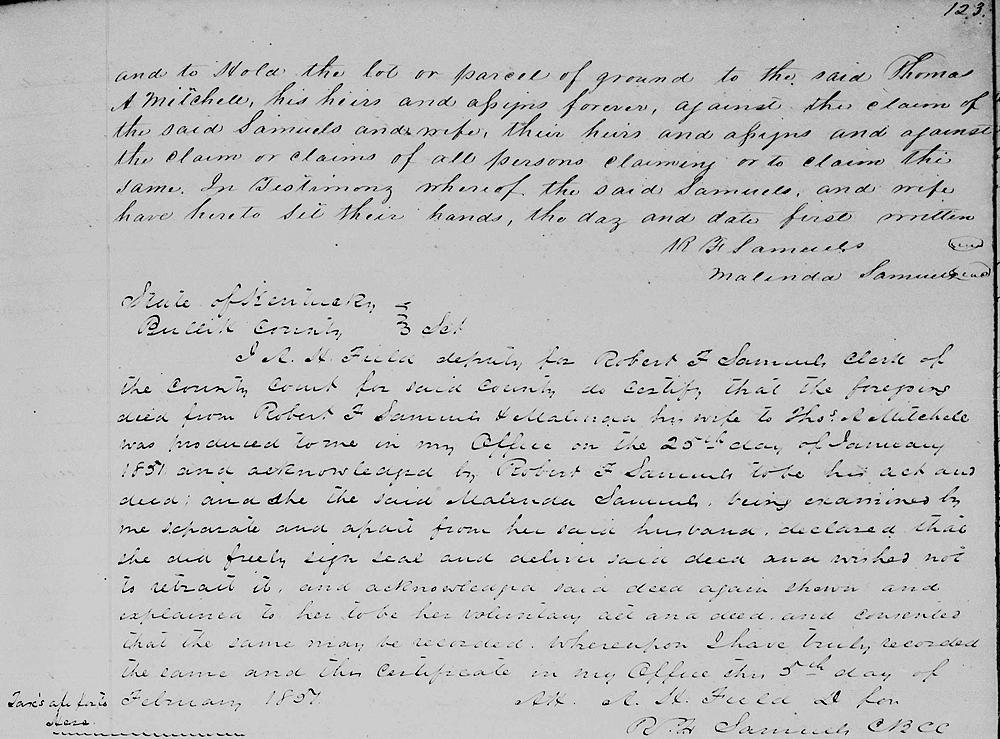 123.
and to Hold the lot or parcel of ground to the said Thomas
A Mitchell, his heirs and assigns forever, against the claim of
the said Samuels and wife, their heirs and assigns and against
the claim or claims of all persons claiming or to claim the
same. In Testimony whereof the said Samuels, and wife
have hereto set their hands, the day and date first written
R F Samuels seal
Malinda Samuels seal
State of Kentucky
Bullitt County Sct
I A. H. Field deputy for Robert F Samuels Clerk of
the County Court for said County do certify that the foregoing
deed from Robert F Samuels & Malinda his wife to Thos A Mitchell
was produced to me in my Office on the 25th day of January
1851 and acknowledged by Robert F Samuels to be his act and
deed; and she the said Malinda Samuels, being examined by
me separate and apart from her said husband, declared that
she did freely sign seal and deliver said deed and wished not
to retract it, and acknowledged said deed again shewn and
explained to her to be her voluntary act and deed, and consented
that the same may be recorded. Whereupon I have truly recorded
the same and this certificate in my Office this 5th day of
February 1851. Att. A. H. Field D for
R. F. Samuels CBCC
here.